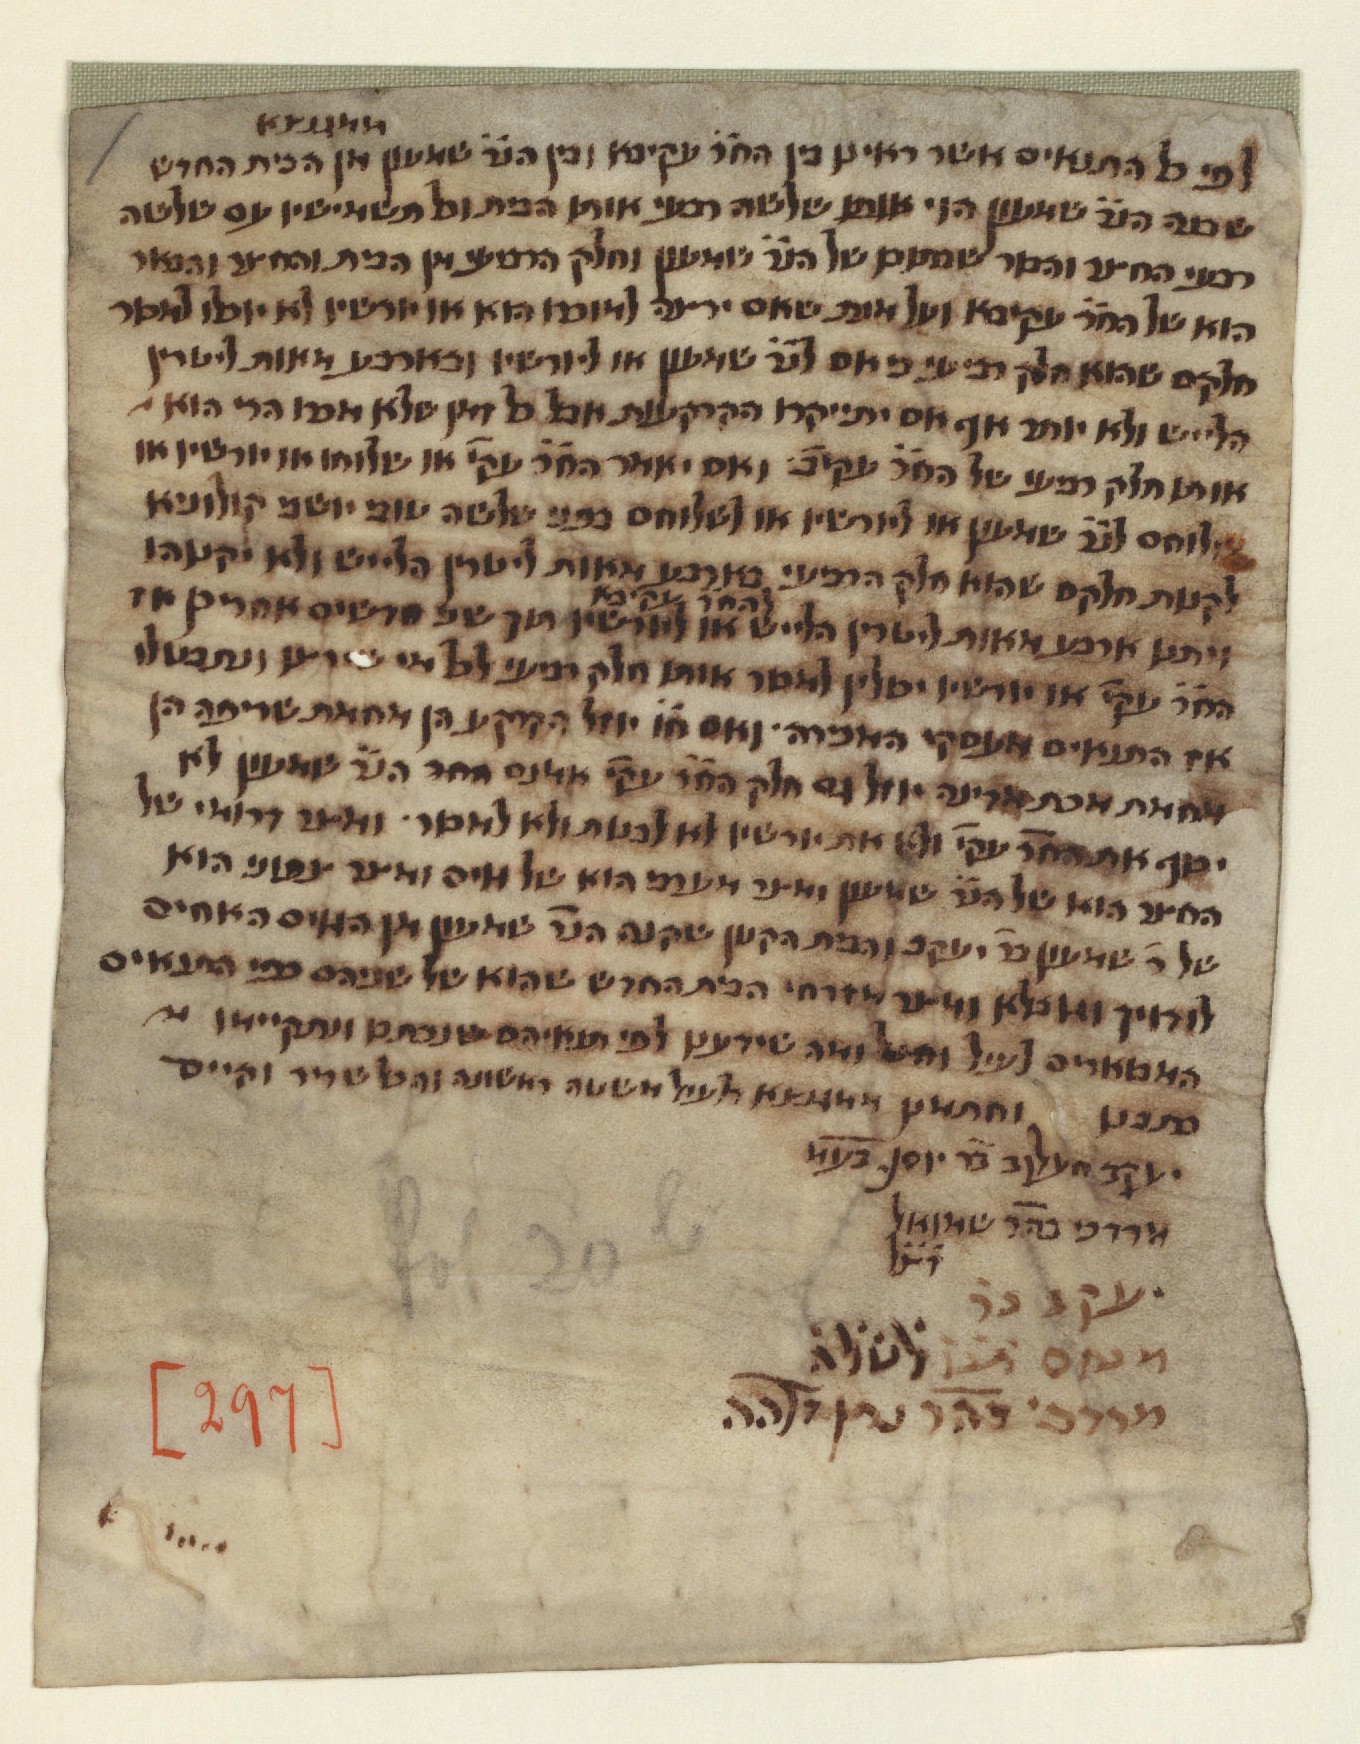 ממגנצא
לפי כל התנאים אשר ראינו בין החֹרֹ עקיבא ובין הנֹדֹ שמעון מן הבית החדש
שבנה הנֹדֹ שמעון הוי אותן שלשה רבעי אותו הבית וכל תשמישיו עם שלשה
רבעי החיצר והבור של הנֹדֹ שמעון וחלק הרביעי מן הבית והחיצר והבאר
הוא של החֹרֹ עקיבא ועל מנת שאם ירצה למוכרו הוא או יורשיו לא יוכלו למכור
חלקם שהוא חלק רביעי כי אם לנֹדֹ שמעון או ליורשיו ובארבע מאות ליטרין
הלייש ולא יותר אף אם יתייקרו הקרקעות אבל כל זמן שלא מכרו הרי הוא
אותו חלק רביעי של החֹרֹ עקיבֹ. ואם יאמר החֹרֹ עקיֹ או שלוחו או יורשיו או
שלוחם לנֹדֹ שמעון או ליורשיו או לשלוחם בפני שלשה טובי יושבי קולוניא
לקנות חלקם שהוא חלק הרביעי בארבע מאות ליטרין הלייש ולא יקנוהו
להחר עקיבא
ויתנו ארבע מאות ליטרין הלייש או ליורשיו תוך שני חדשים אחרים אז
החֹרֹ עקיֹ או יורשיו יכולין למכור אותו חלק רביעי לכל מי שירצו ונתבטלו
אז התנאים מעסקי המכירה. ואם חֹוֹ יוזל הקרקע הן מחמת שריפה הן
מחמת מכת מדינה יוזל גם חלק החֹרֹ עקיֹ אמנם הנֹדֹ שמעון לא
יכוף את החֹרֹ עקיֹ ולא את יורשיו לא לבנות ולא למכור. ומיצר דרומי של
החיצר הוא של הנֹדֹ שמעון ומיצר מערבי הוא של גוים ומיצר צפוני הוא
של רֹ שמעון ברֹ יעקב והבית הקטן שקנה הנֹדֹ שמעון מן הגוים האחים
לודויך ומיצר מזרחי הבית החדש שהוא של שניהם כפי התנאים
המבוארים לעיל ומה שידענו לפי תנאיהם שנכתבו ונתקיימו
כתבנו וחתמנו ממגנצא לעיל משטה ראשונה והכל שריר וקיים
יעקב בֹרֹ יוסף
מרדכי בהֹרֹ שמואל
זֹצֹל
יעקב ברֹ
מנחם
מרדכי בהֹרֹ נתן
fol 20 b
[297]